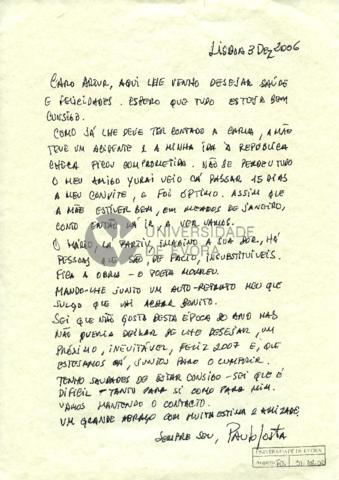 Lisboa 3 Dez 2006
Caro Artur, aqui lhe venho desejar saúde
e felicidades. Espero que tudo esteja bem
consigo.
Como já lhe deve ter contado a Carla, a mãe
teve um acidente e a minha ida à República
Checa ficou comprometida. Não se perdeu tudo
o meu amigo Yurai veio cá passar 15 dias
a meu convite, e foi óptimo. Assim que
a mãe estiver bem, em meados de Janeiro,
conto então lá ir, a ver vamos.
O Mário lá partiu, imagino a sua dor, há
pessoas que são, de facto, insubstituíveis.
Fica a obra - o poeta morreu.
Mando-lhe junto um auto-retrato meu que
julgo que vai achar bonito.
Sei que não gosta desta época do ano mas
não queria deixar de lhe desejar, um
próximo, inevitável, feliz 2007 e, que
estejamos cá, juntos para o cumprir.
Tenho saudades de estar consigo - sei que é
difícil - tanto para si como para mim.
Vamos mantendo o contacto.
Um grande abraço com muita estima e amizade.
Sempre seu, Paulo Costa
UNIVERSIDADE
DE ÉVORA
UNIVERSIDADE DE ÉVORA